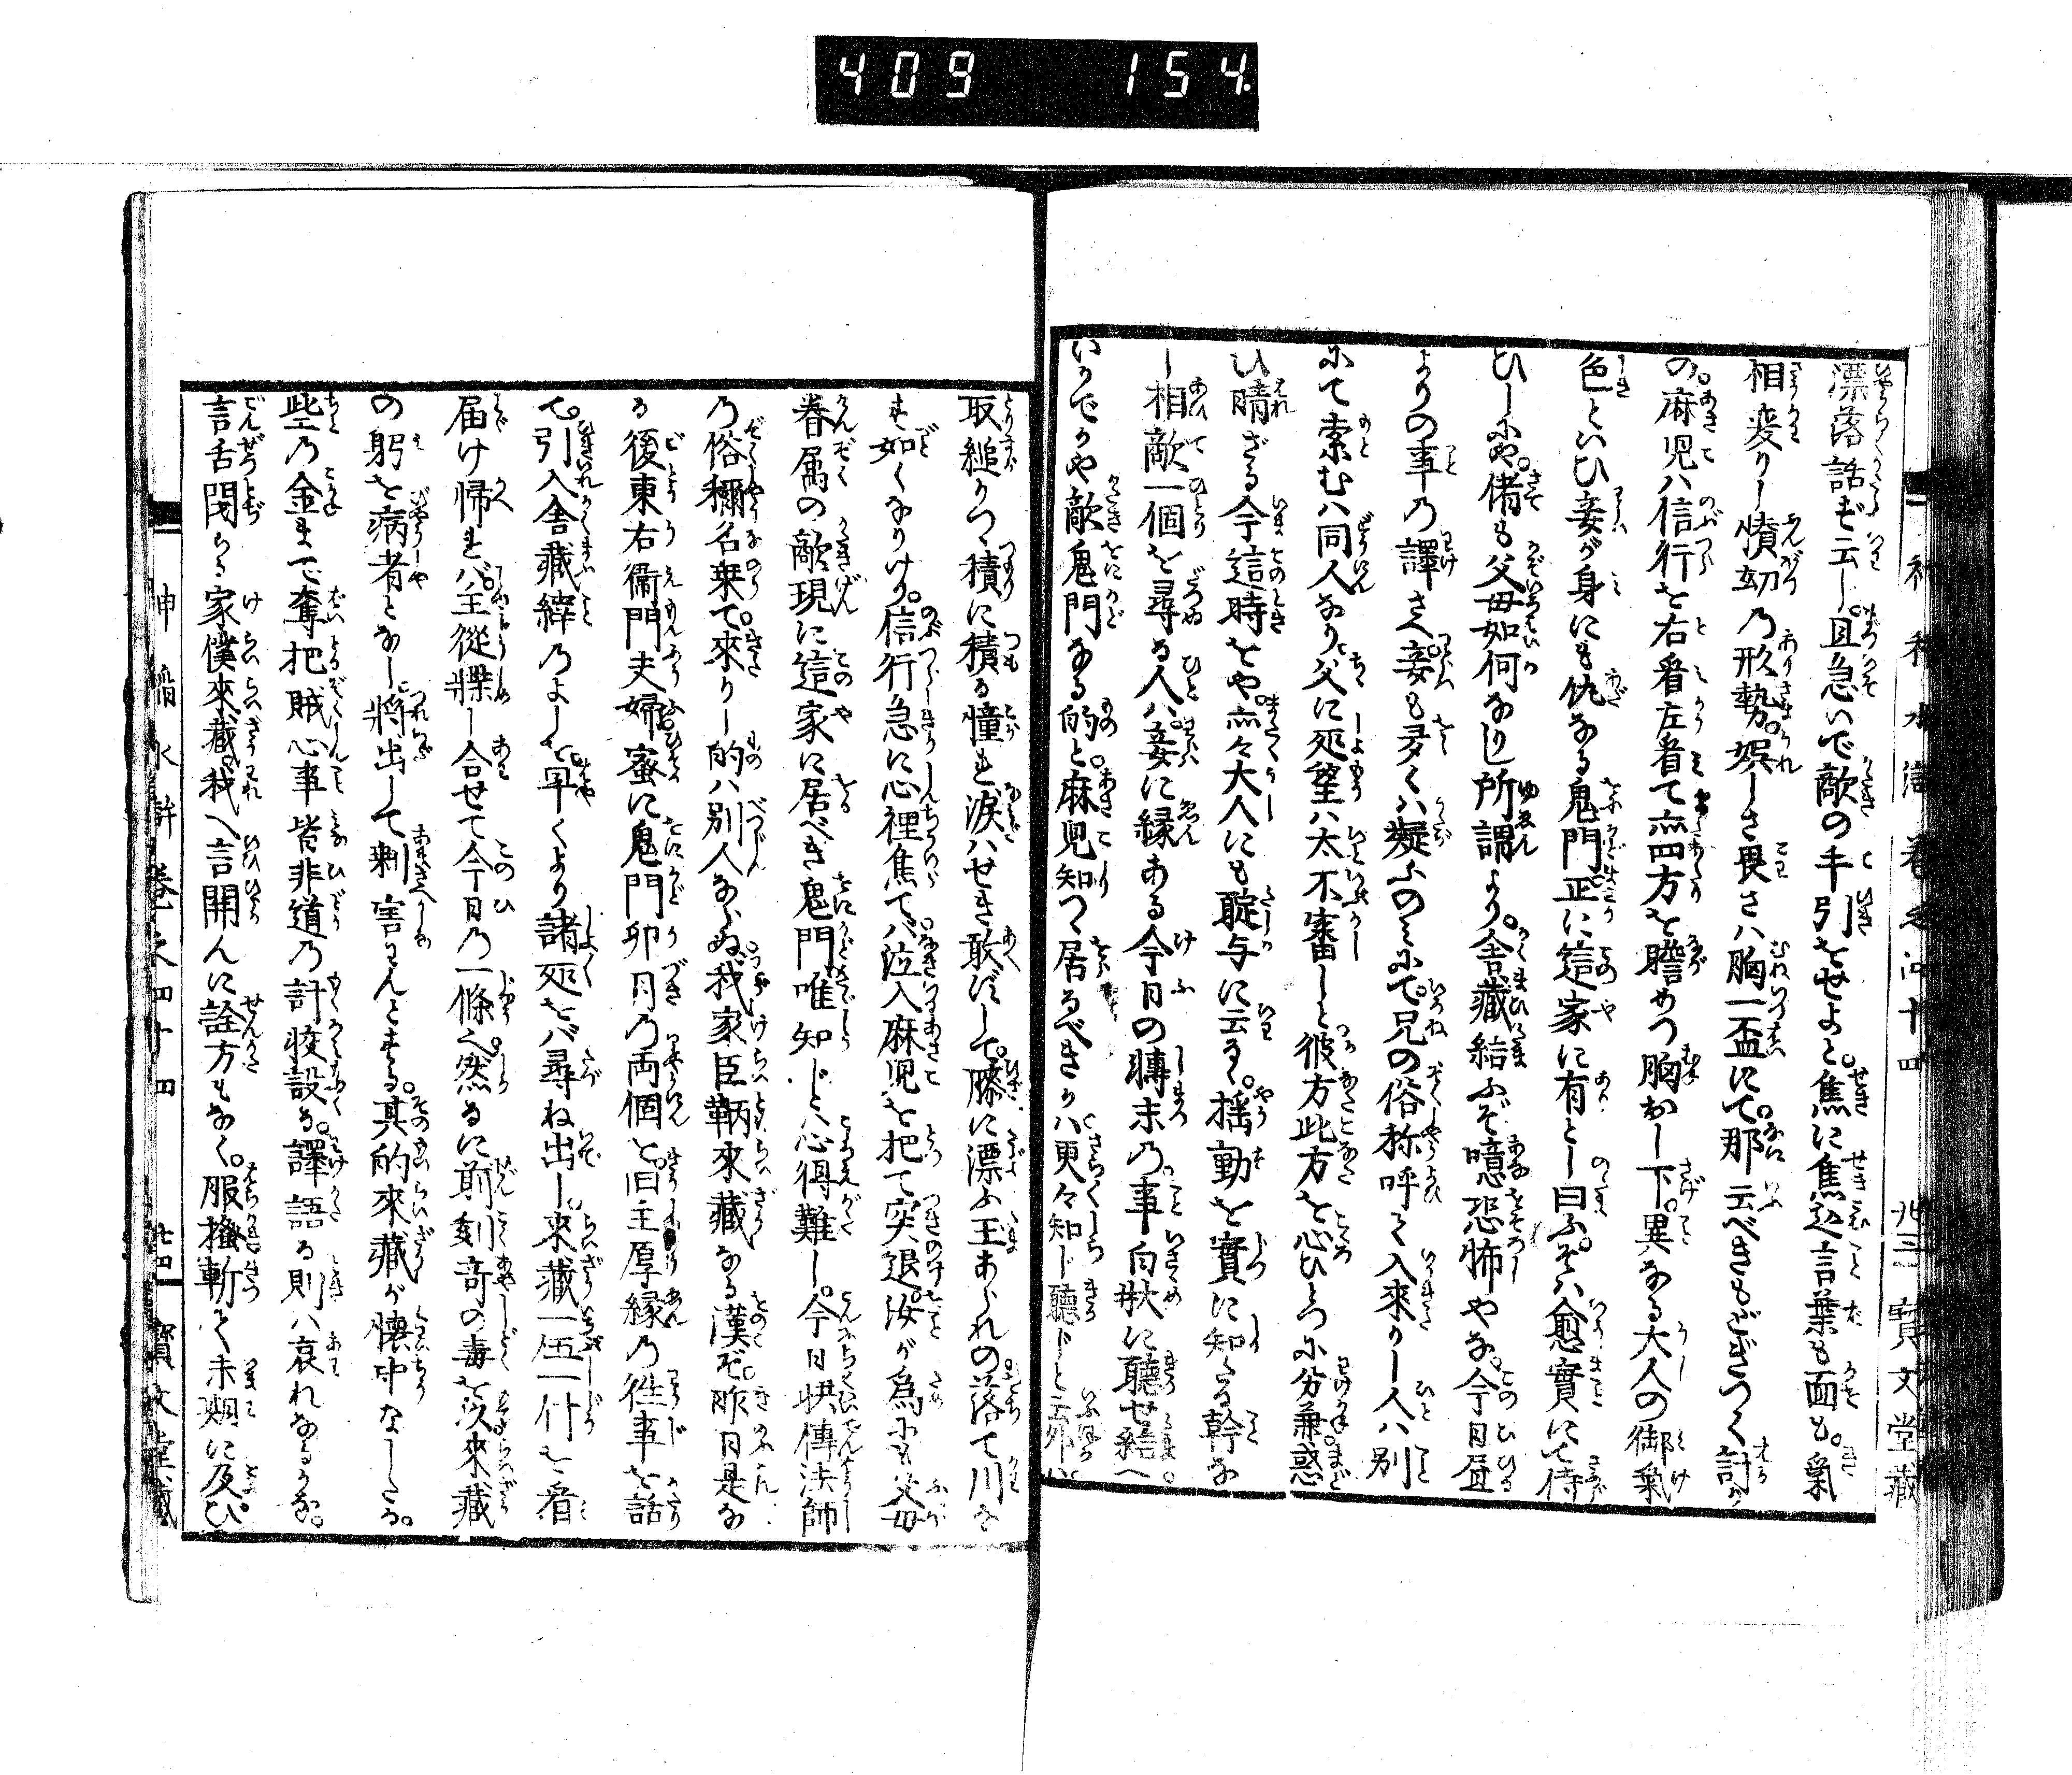 409 154
神稲水滸巻之四十四 廿三 寳文堂藏
漂落話ず云し。且急いで敵の手引をせよと。焦に焦込言葉も面も。氣
相変りし憤㓜の形勢。娯しさ畏さハ胸一盃にて。那云べきもどぎつく討り
の。麻児ハ信行を右看左看て亦四方を瞻めつ胸おし下。異なる大人の御氣
色といひ妾が身にも仇なる鬼門正に這家に有とし曰ふ。そハ愈實にて侍
ひしにや。偖も父母如何なりし所謂より。舎藏給ふぞ噫恐怖やな。今日昼
よりの事の譯さへ。妾も多くハ凝ふのミにて。兄の俗称呼て入來りし人ハ別
にて索むハ同人なり。父に処望ハ太不審しと彼方此方を心ひとつに分兼。惑
ひ晴ざる今這時をや。亦々大人にも聢与に云る。揺動を實に知たる幹な
し相敵一個を尋る人ハ。妾に縁ある今日の轉末の。事白状に聽せ給へ
いかでかや敵鬼門なる的と。麻児知つ居るべきかハ更々知じ聽じと云外ハ
取縋りつ積に積る憧れ涙ハせき敢ずして。膝に漂ふ玉あられの落て川な
す如くなりけり。信行急に心裡焦てバ泣入麻児を把て突退。汝が為にも父母
眷属の敵現に這家に居べき鬼門唯知じとハ心得難し。今日洪傳法師
の俗稱名乗て。來りし的ハ別人ならぬ我家臣鞆來藏なる漢ぞ。昨日是な
る後東右衞門夫婦蜜に鬼門卯月の両個と。旧主厚縁の徃事を話
て。引入舎藏緯のよしを。早くより諸処をバ尋ね出し。來藏一伍一什を看
届け帰れバ。主從牒し合せて今日の一條之。然るに前刻奇の毒を以來藏
の躬を病者となし將出して剰害せんとする。其的來藏が懐中なしたる。
些の金まで奪把賊心事皆非道の計狡設る。譯語る則ハ哀れなるかな。
言舌閇らる家僕來藏。我へ言開んに詮方もなく。服掻斬て未期に及び。
神稲水滸巻之四十四 廿四 寳文堂藏